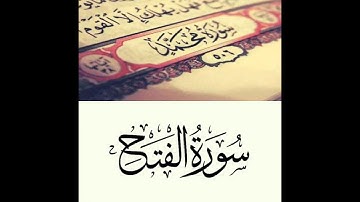 يهلك إلا القوم
سورة محمد
٥٠٦
سُورَةُ الْفَتْحِ